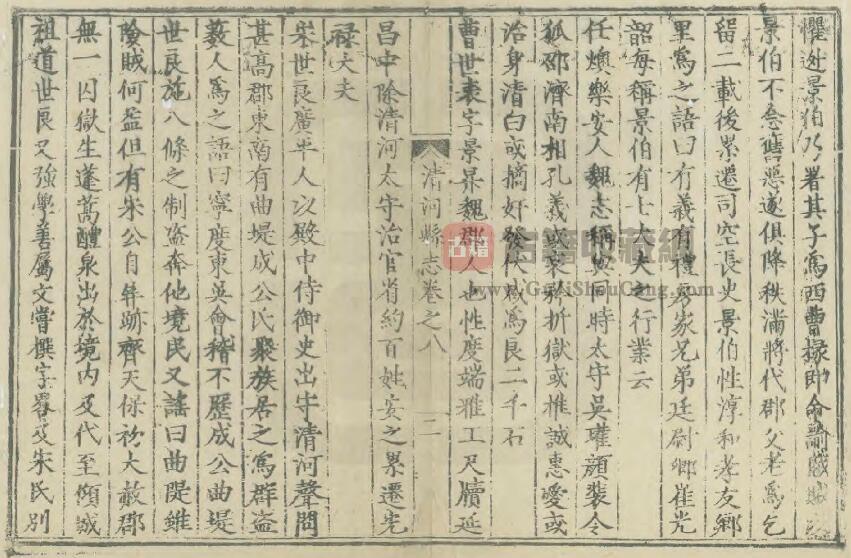 懼逃景伯乃署其子為西曹掾即命諭賊賊
景伯不念舊惡遂俱降秩滿將代郡父老為乞
留二載後累遷司空長史景伯性淳和孝友鄉
里為之語曰有義有禮房家兄弟廷尉卿崔光
韶每稱景伯有士大夫之行業云
任燠樂安人魏志稱與同時太守吳瓘顏裴令
狐邵濟南相孔義或哀矜折獄或推誠惠愛或
治身清白或摘奸發伏咸為良二千石
曹世表字景昇魏郡人也性度端雅工尺牘延
清河縣志卷之八
二
昌中除清河太守治官省約百姓安之累遷光
祿大夫
宋世良廣平人以殿中侍御史出守清河聲問
甚高郡東南有曲堤成公氏聚族居之為群盜
藪人為之語曰寧度東吳會稽不歷成公曲堤
世良施八條之制盜奔他境民又謠曰曲隄雖
險賊何益但有宋公自屏跡齊天保初大赦郡
無一囚獄生蓬蒿醴泉出於境內及代至傾城
祖道世良又強學善屬文嘗撰字畧及宋氏別
古籍收藏網
www.GuJiShouCang.com